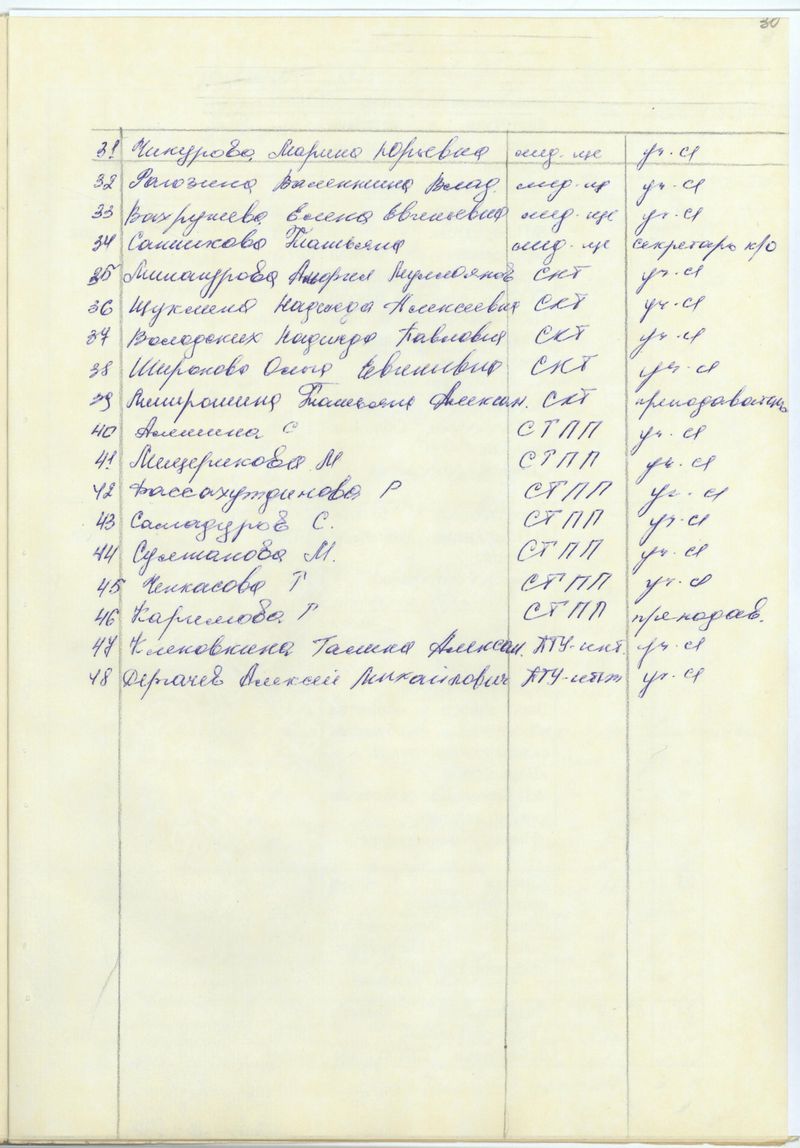 30
31 Чикурова Марина Юрьевна мед. уч-ще уч-ся
32 Рагозина Валентина Влад. мед. уч-ще уч-ся
33 Вахрушева Елена Евгеньевна мед. уч-ще уч-ся
34 Санникова Татьяна мед. уч-ще секретарь к/о
35 СКТ уч-ся
36 Щуклина Надежда Алексеевна СКТ уч-ся
37 Володских Надежда Павловна СКТ уч-ся
38 Широкова Ольга Евгеньевна СКТ уч-ся
39 Митрошина Татьяна Алексан. СКТ преподаватель
40 Алшина С СТПП уч-ся
41 Мещерикова М СТПП уч-ся
42 Р СТПП уч-ся
43 С. СТПП уч-ся
44 Султанова М. СТПП уч-ся
45 Черкасова Т СТПП уч-ся
46 Каримова Г СТПП преподав.
47 Галина Алексан. ПТУ-инт. уч-ся
48 Дергачев Алексей Михайлович ПТУ-инт уч-ся